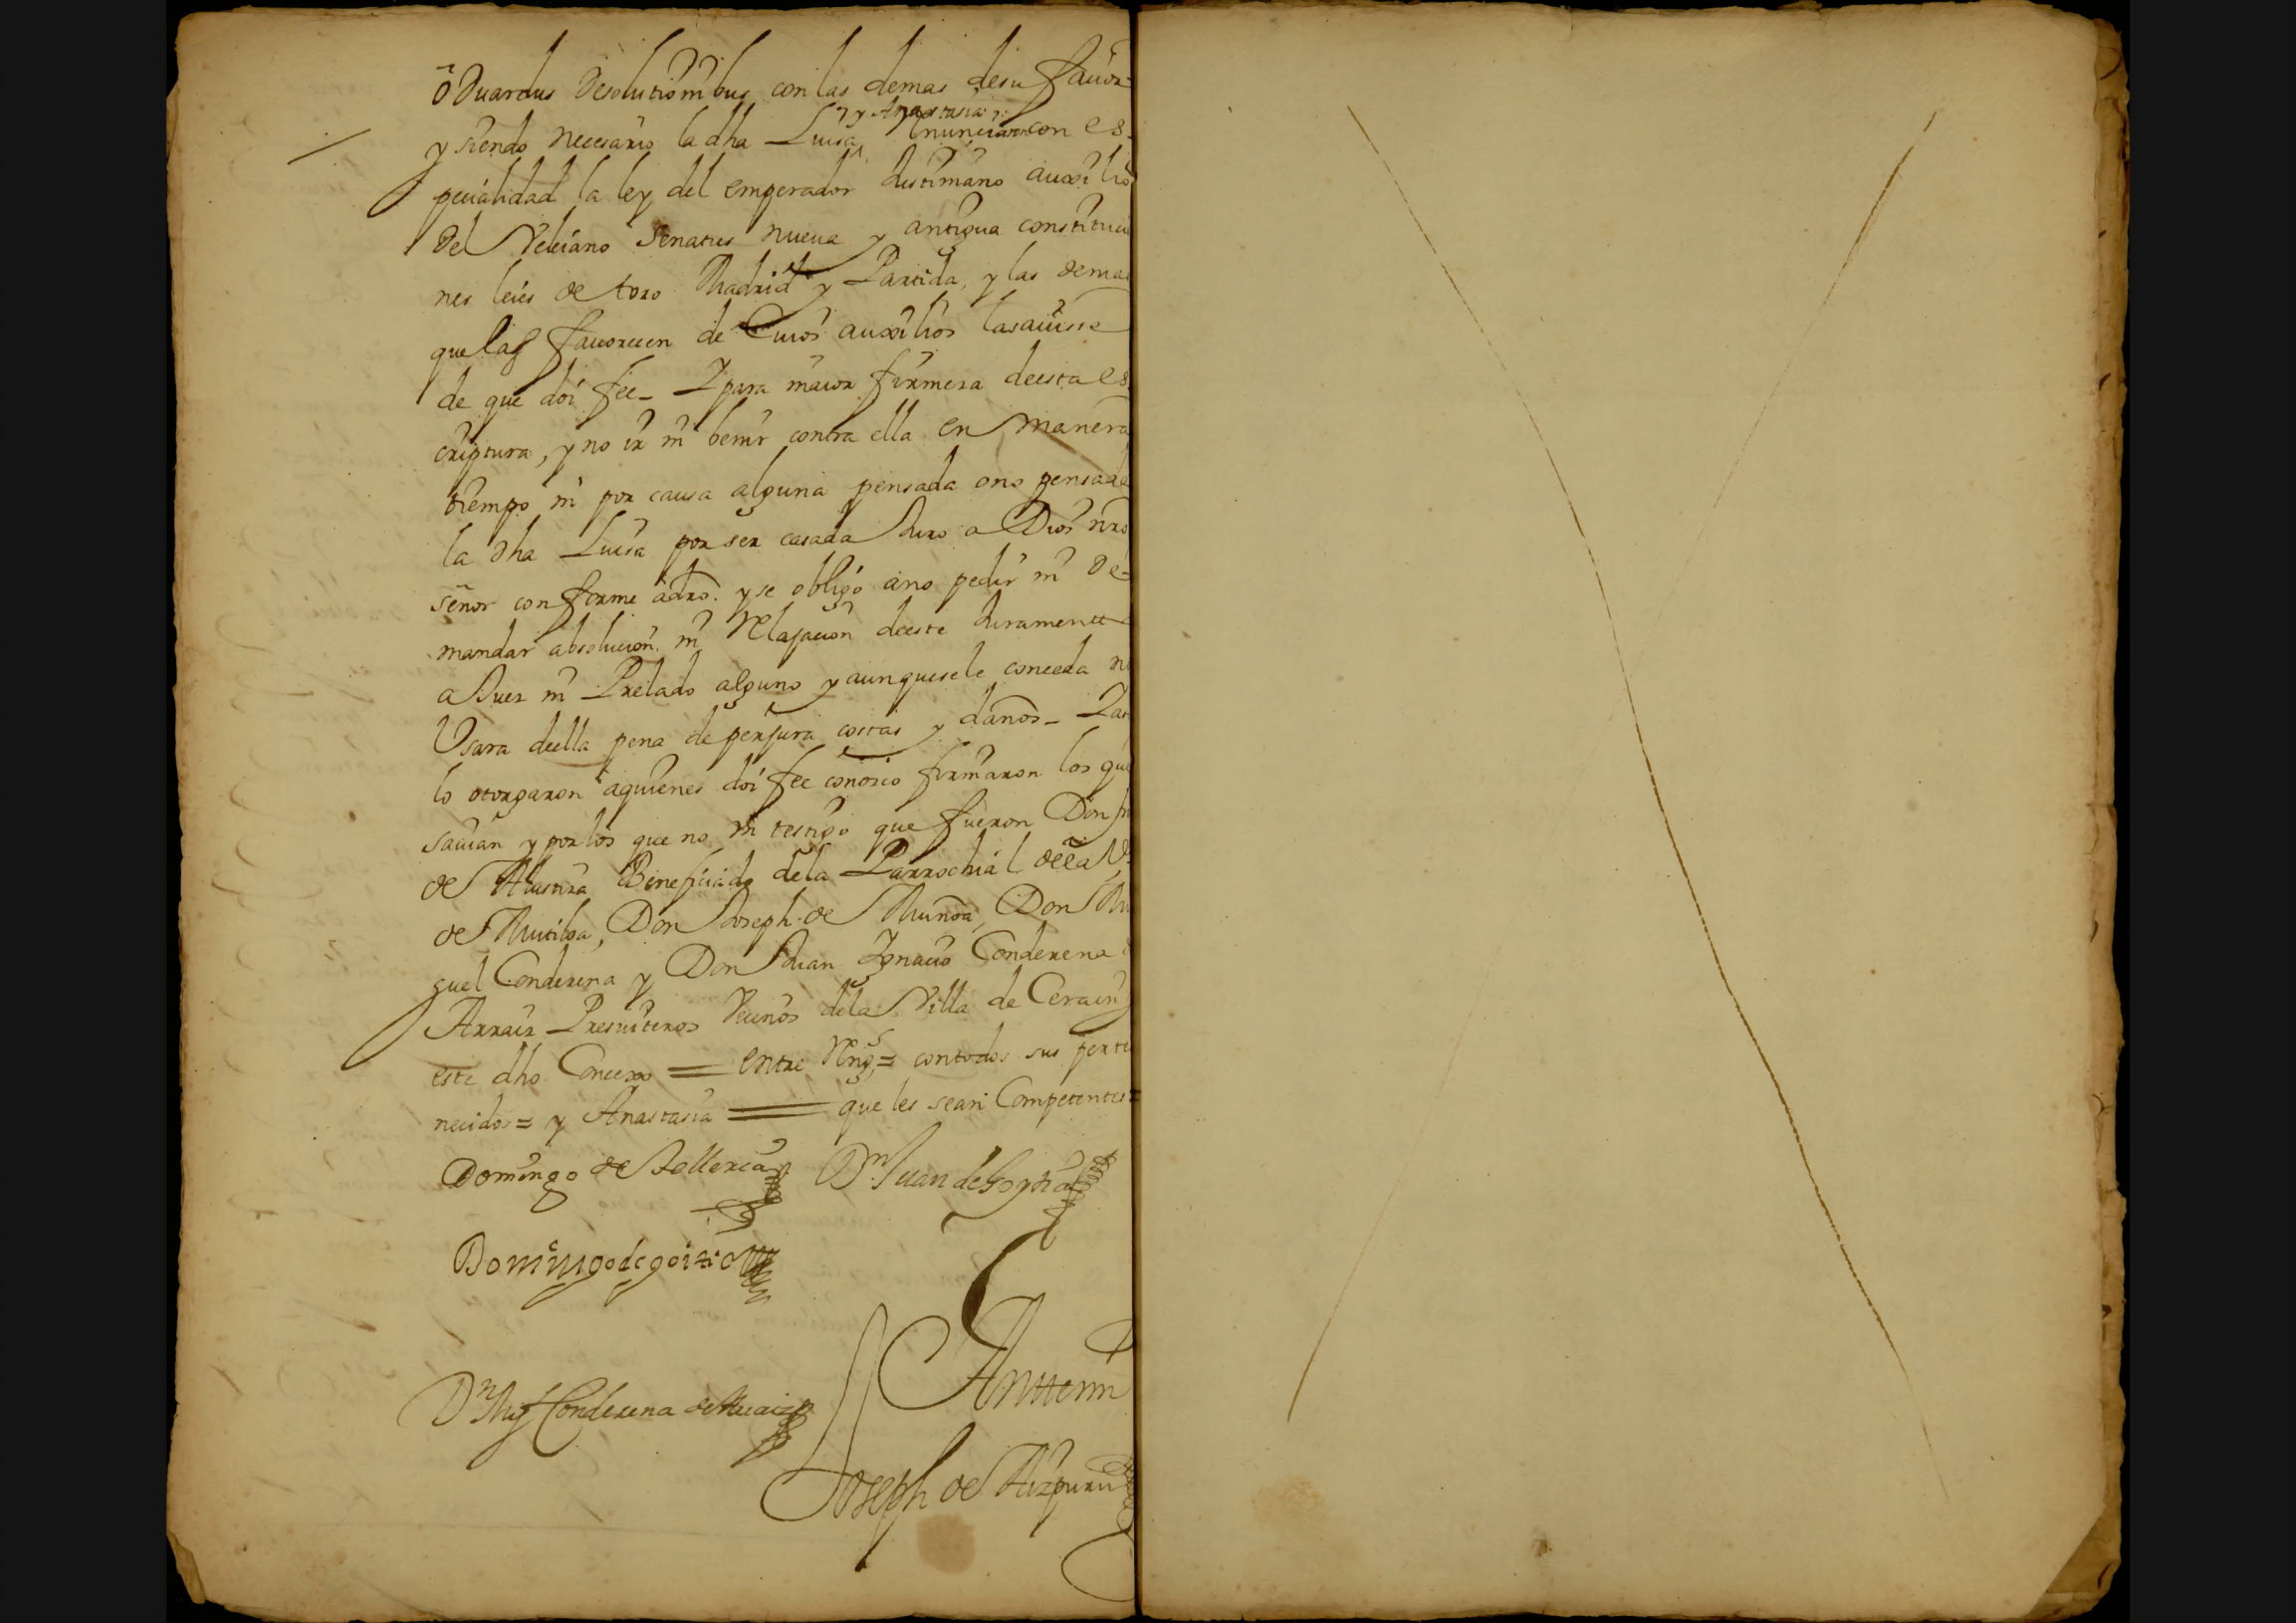 ô Duardus Desolutionibus con las demas de su fauor
y siendo necesario la dha Luisa y Anastasia Renunciaron con es-
pecialidad la ley del emperador Justiniano auxilio
del Veleiano Senatus nueua y antigua constitucio
nes leies de toro Madrid y Partida, y las demas
que las fauorecen de Cuios auxilios las auisse
de que doi fee - Y para maior firmesa de esta es
criptura, y no ir ni benir contra ella en manera
tiempo ni por causa alguna pensada o no pensada
la dha Luisa por ser casada Juro a Dios nro
señor conforme a dro. y se obligó a no pedir ni de-
mandar absolucion ni Relajacion de este Juramento
a Juez ni Prelado alguno y aunque se le conceda no
Usara de ella pena de perjura costas y daños - Y assi
lo otorgaron a quienes doi fee conosco firmaron los que
sauian y por los que no un testigo que fueron Don
de Alustiza Beneficiado de la Parrochial de la Va
de Mutiloa, Don Joseph de Munoa, Don Mi
guel Conderena y Don Juan Ygnacio Conderena
Arraiz Presuiteros Vecinos de la Villa de Cerain
este dho Concexo = entre Rengs = con todos sus perte
necidos = y Anastasia = que les sean Competentes =
Domingo de Telleria Dn Juan de Goytia
Domingo de goitia
Antemi
Dn Migl Conderena de Arraiz
Joseph de Aizpuru